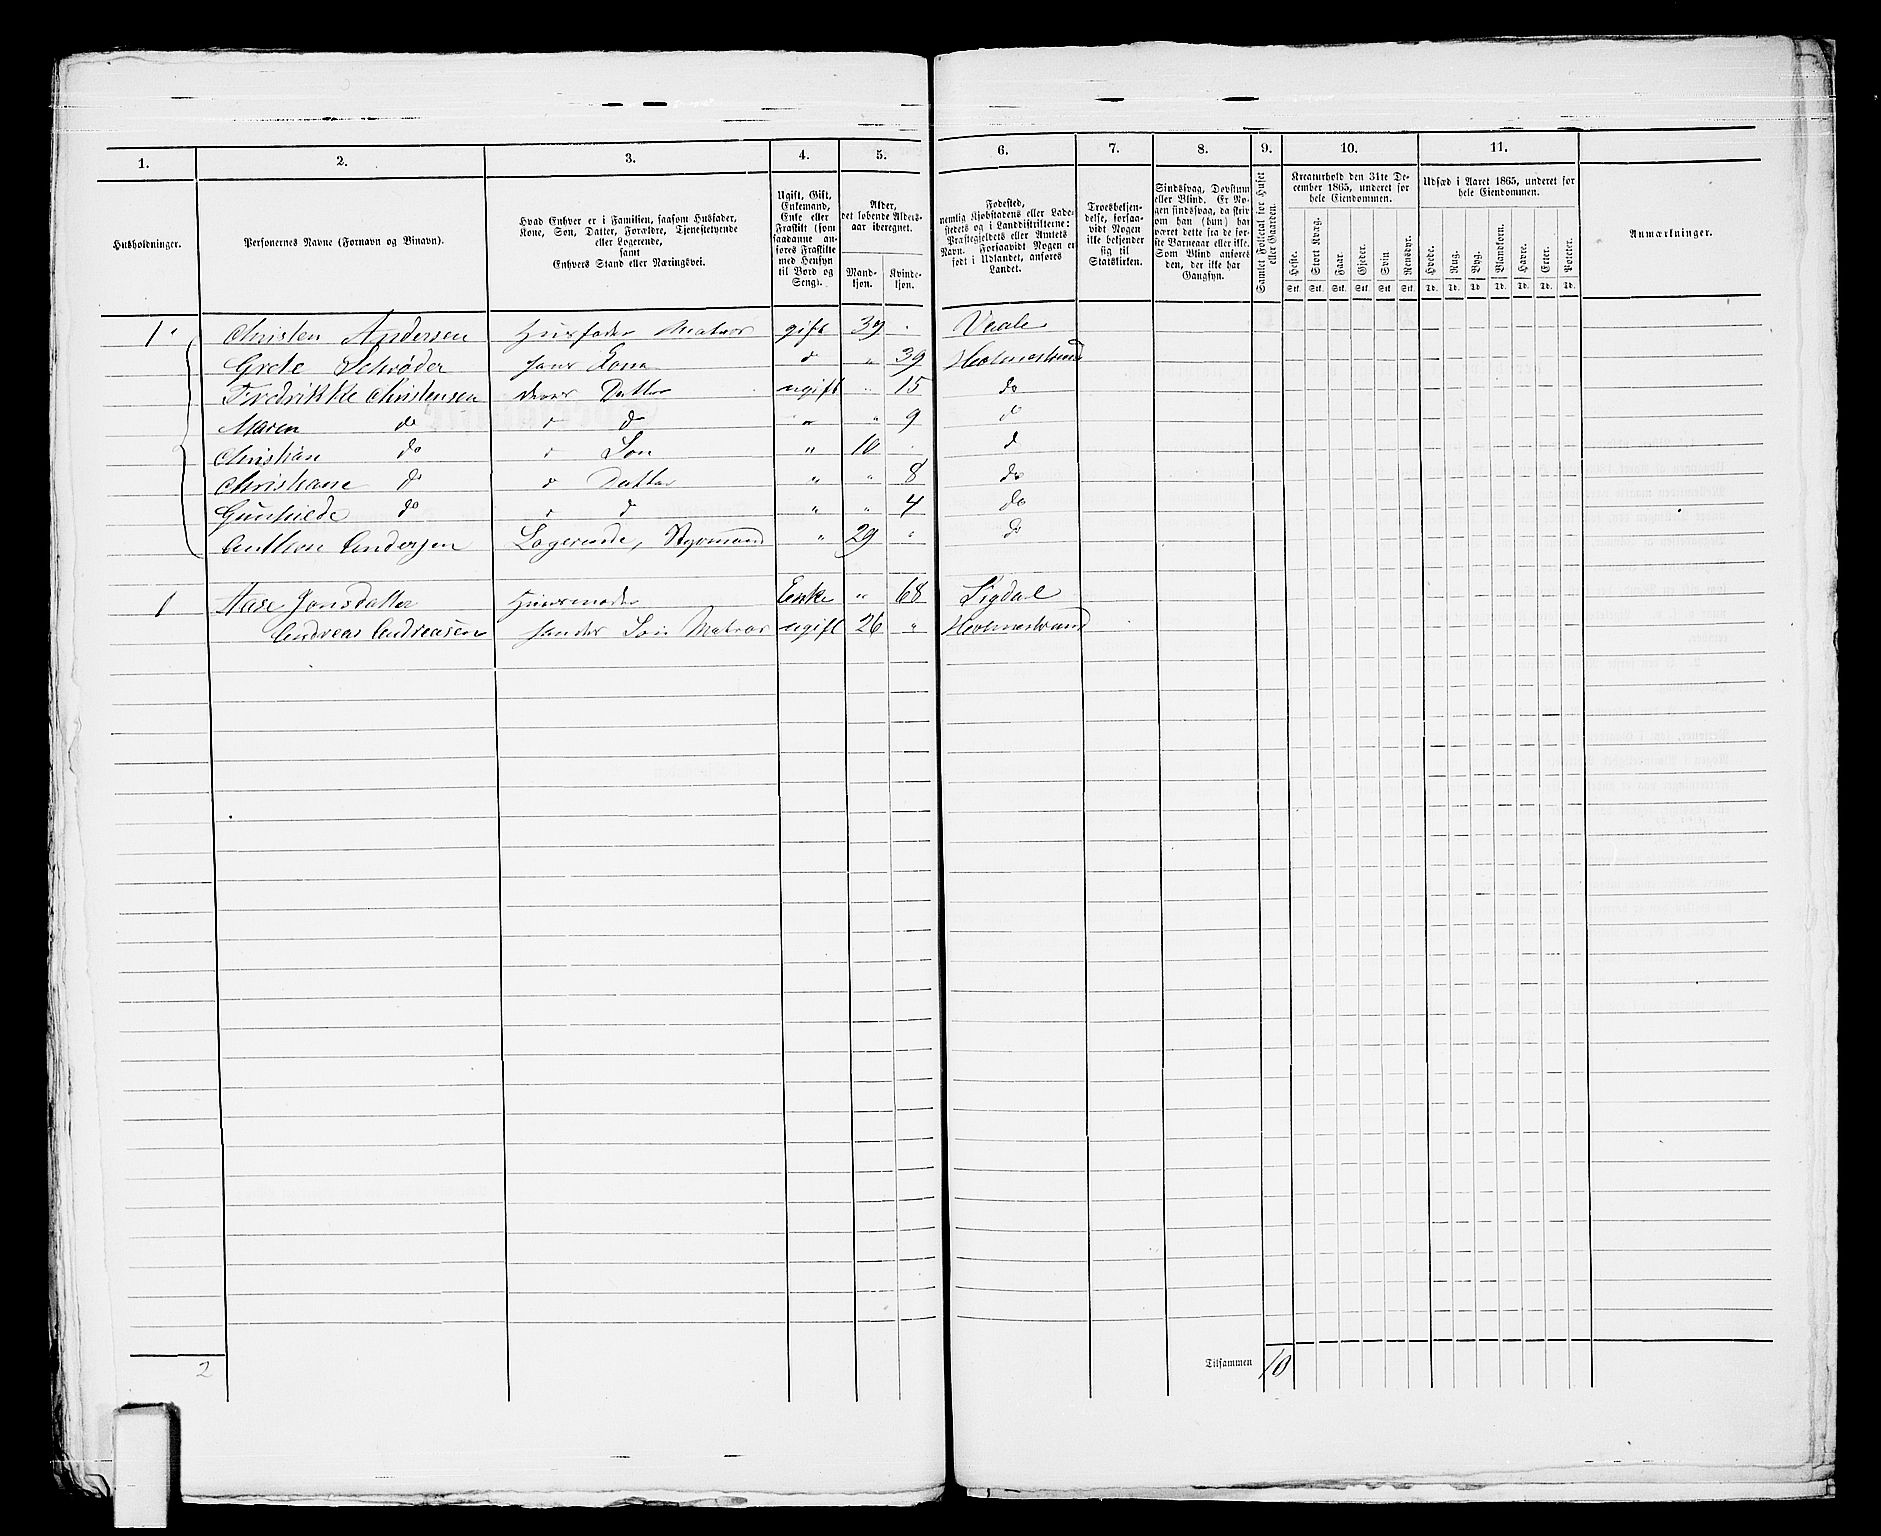 1. 2. 3. 4. 5. 6. 7. 8. 9. 10. 11.
Husholdninger.
Personernes Navne (Fornavn og Binavn).
Hvad Enhver er i Familien, saasom Husfader,
Kone, Søn, Datter, Forældre, Tjenestetyende
eller Logerende,
samt
Enhvers Stand eller Næringsvei.
Ugift, Gift,
Enkemand,
Enke eller
Fraskilt (som
saadanne an-
føres Fraskilte
med Hensyn
til Bord og
Seng).
Alder,
det løbende Alders-
aar iberegnet.
Mand-
kjøn.
Kvinde-
kjøn.
Fødested,
nemlig Kjøbstadens eller Lade-
stedets og i Landdistrikterne:
Præstegjeldets eller Amtets
Navn. Forsaavidt Nogen er
født i Udlandet, anføres
Landet.
Troesbekjen-
delse, forsaa-
vidt Nogen
ikke bekjender
sig til
Statskirken.
Sindssvag, Døvstum
eller Blind. Er No-
gen sindssvag, da skriv
om han (hun) har
været dette fra de før-
ste Barneaar eller ikke.
Som Blind anføres
den, der ikke har
Gangsyn.
Samlet Folketal for Huset
eller Gaarden.
Kreaturhold den 31te De-
cember 1865, underet for
hele Eiendommen.
Heste. Stort Kvæg. Faar. Gjeder. Svin. Rensdyr.
Stk. Stk. Stk. Stk. Stk. Stk.
Udsæd i Aaret 1865, underet for
hele Eiendommen.
Hvede. Rug. Byg. Blandkorn. Havre. Erter. Poteter.
Td. Td. Td. Td. Td. Td. Td.
Anmærkninger.
1 Christen Andersen Huusfader Matros gift 39 Veile
Grete Schrøder hans Kone d " 39 Holmestrand
Fredrikke Christensen deres Datter ugift " 15 do
Maren do " d " " 9 d
Christian do " Søn " 10 d
Christiane do " Datter " " 8 do
Gunhilde do " d " " 4 do
Anthon Andersen Logerende, Styrmand " 29 " do
1 Aase Jonsdatter Huusmoder Enke " 68 Sigdal
Andreas Andreasen hendes Søn Matros ugift 26 " Holmestrand
2 Tilsammen 10